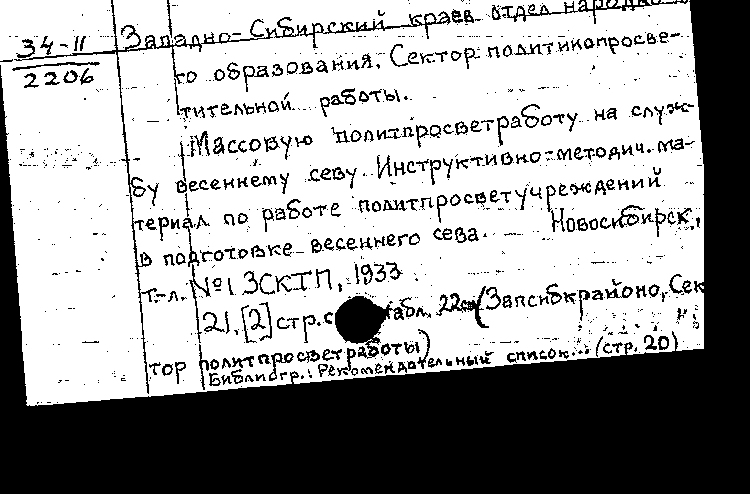 34-II
2206
Западно-Сибирский краев. отдел народно
го образования. Сектор политикопросве-
тительной работы.
Массовую политпросветработу на служ-
бу весеннему севу. Инструктивно-методич. ма-
териал по работе политпросветучреждений
в подготовке весеннего сева. Новосибирск,
т.-л. №1 ЗСКТП, 1933.
21, [2] стр. с табл. 22см (Запсибкрайоно, Сек
тор политпросветработы)
Библиогр.: Рекомендательный список... (стр. 20)